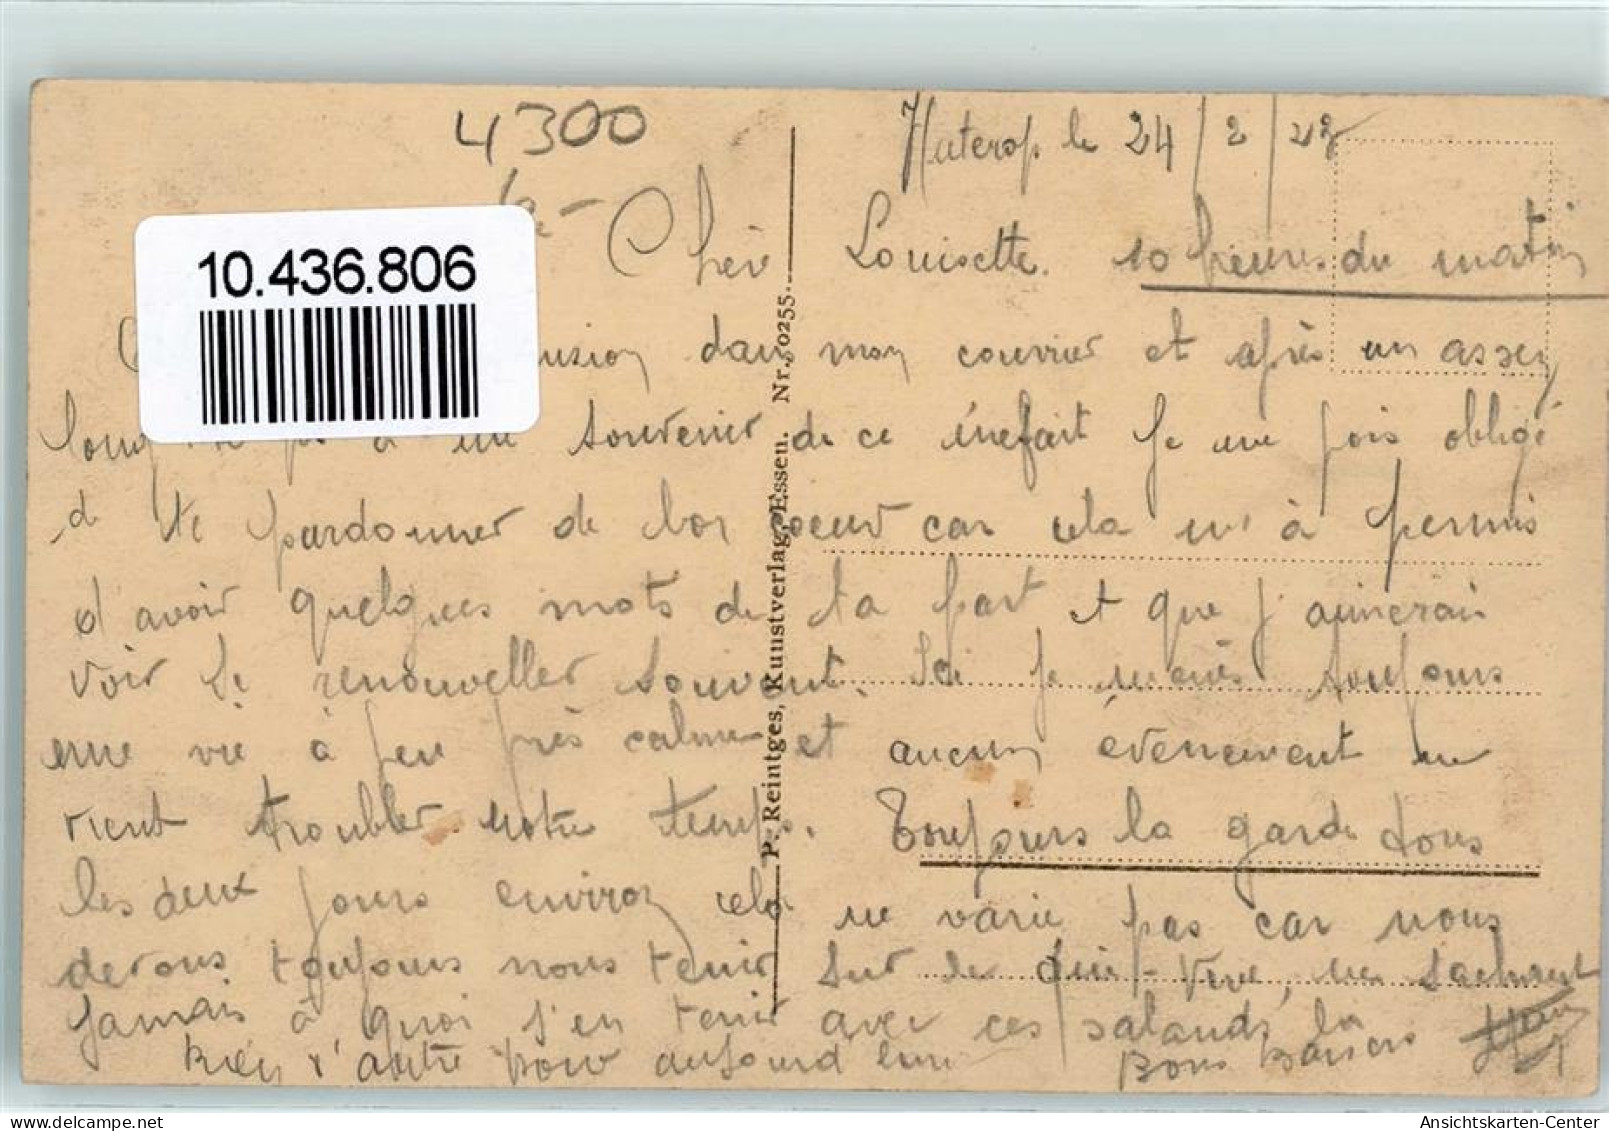 4300
le 24/2/23
Chèr Louisette. 10 heures du matin
10.436.806
dans mon courrier et après un assez
long à un souvenir de ce je me fois obligé
d te pardonner de bon coeur car cela m'à permis
d'avoir quelques mots de ta part et que j'aimerais
voir se renouveller souvent. Ici je mènes toujours
une vie à peu près calme et aucun évènement ne
vient troubler notre temps. Toujours la garde tous
les deux jours environ cela ne varie pas car nous
devons toujours nous tenir sur le qui-vive, ne sachant
jamais à quoi s'en tenir avec ces salauds là
Rien d'autre pour aujourd'hui Bons Baisers
P. Reintges, Kunstverlag, Essen. Nr. 0255.
Ansichtskarten-Center